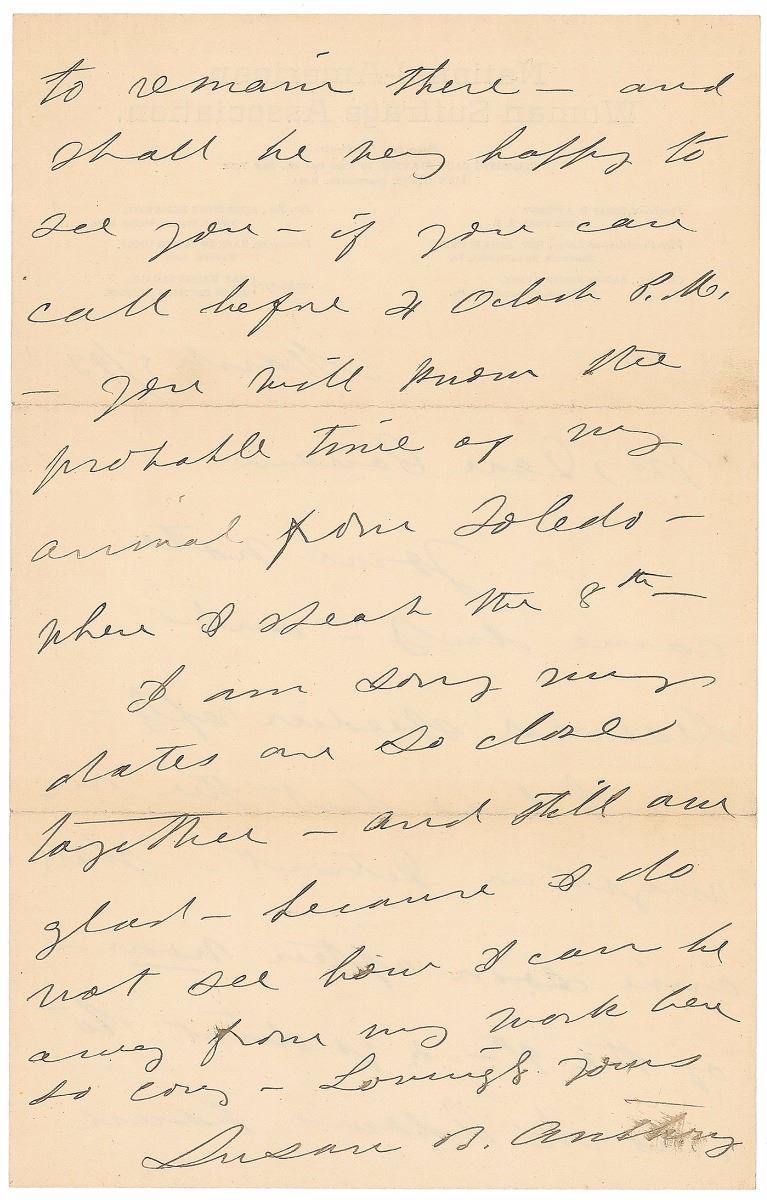 to remain there — and
shall be very happy to
see you — if you can
call before 4 Oclock P.M.
— you will know the
probable time of my
arrival from Toledo —
where I speak the 8th —
I am sorry my
dates are so close
together — and still am
glad — because I do
not see how I can be
away from my work here
so — Lovingly yours
Susan B. Anthony